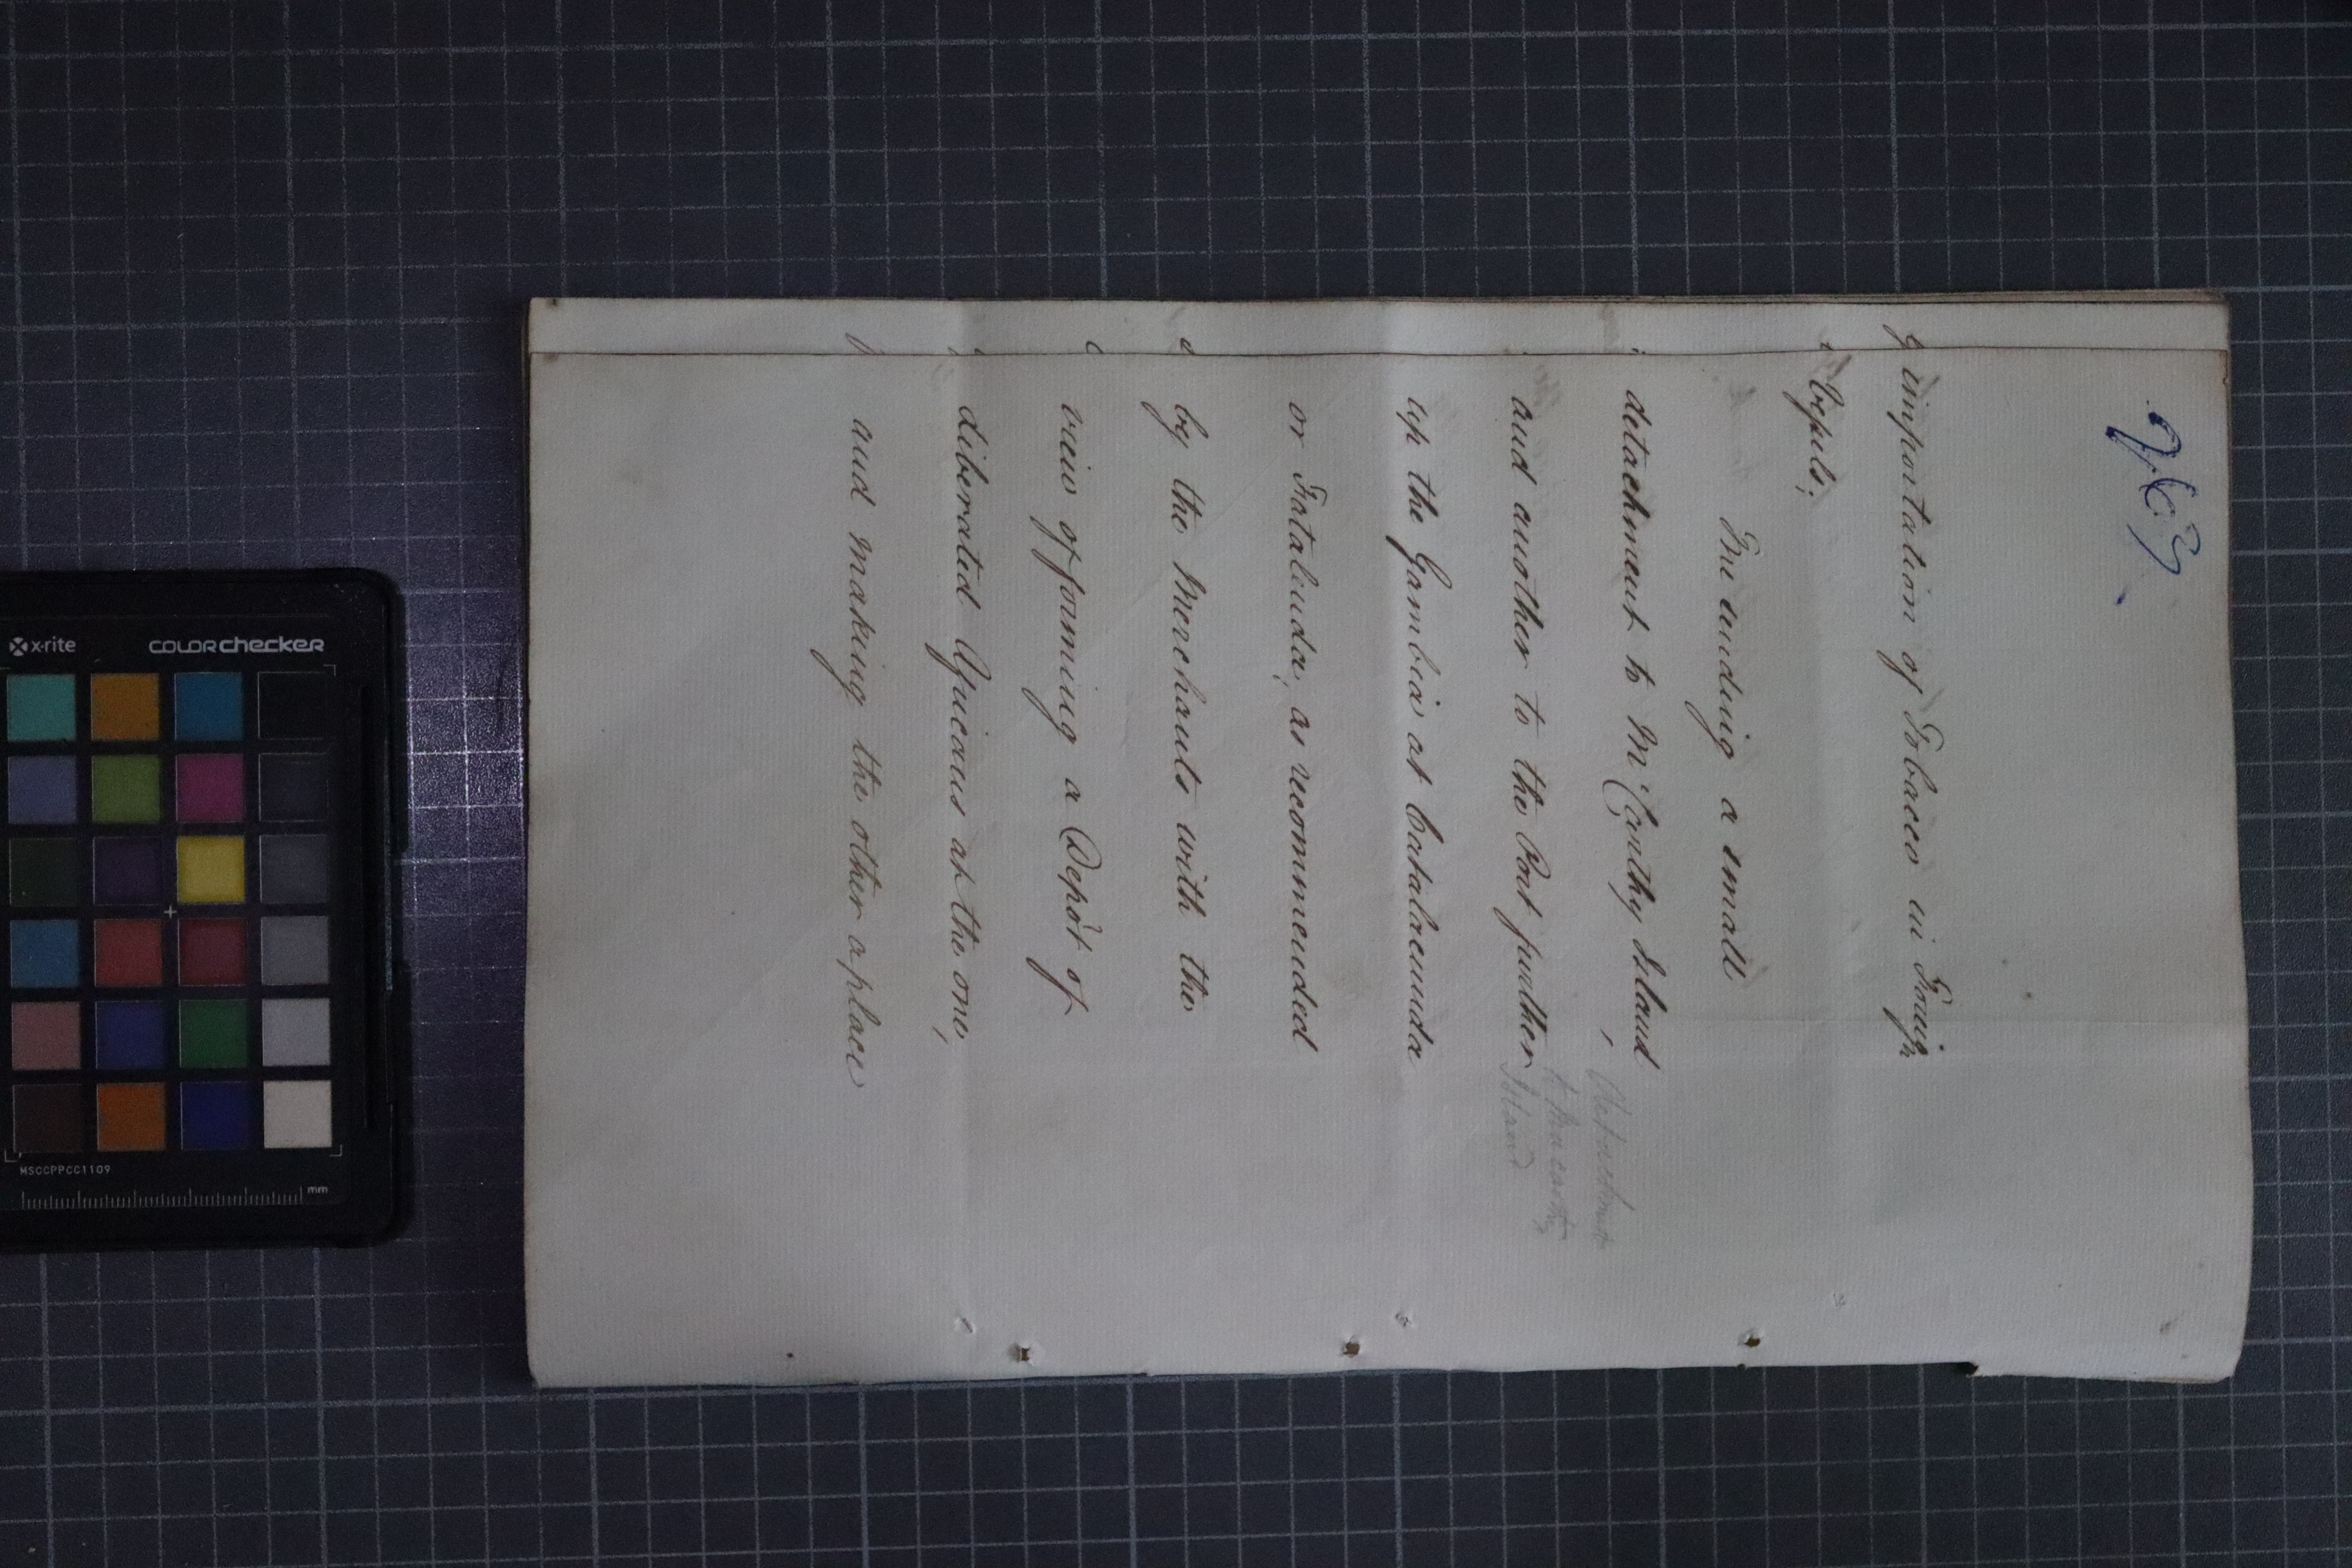 importation of Tobacco in Foreign
Vessels;
The sending a small
detachment to McCarthy Island,
and another to the Port further
up the Gambia at Cantalacunda
or Fatatenda, as recommended
by the Merchants with the
view of forming a Depôt of
liberated Africans at the one,
and making the other a place
Detachment
to MacCarthy
Island
x-rite
COLORchecker
MSCCPPCC1109
mm